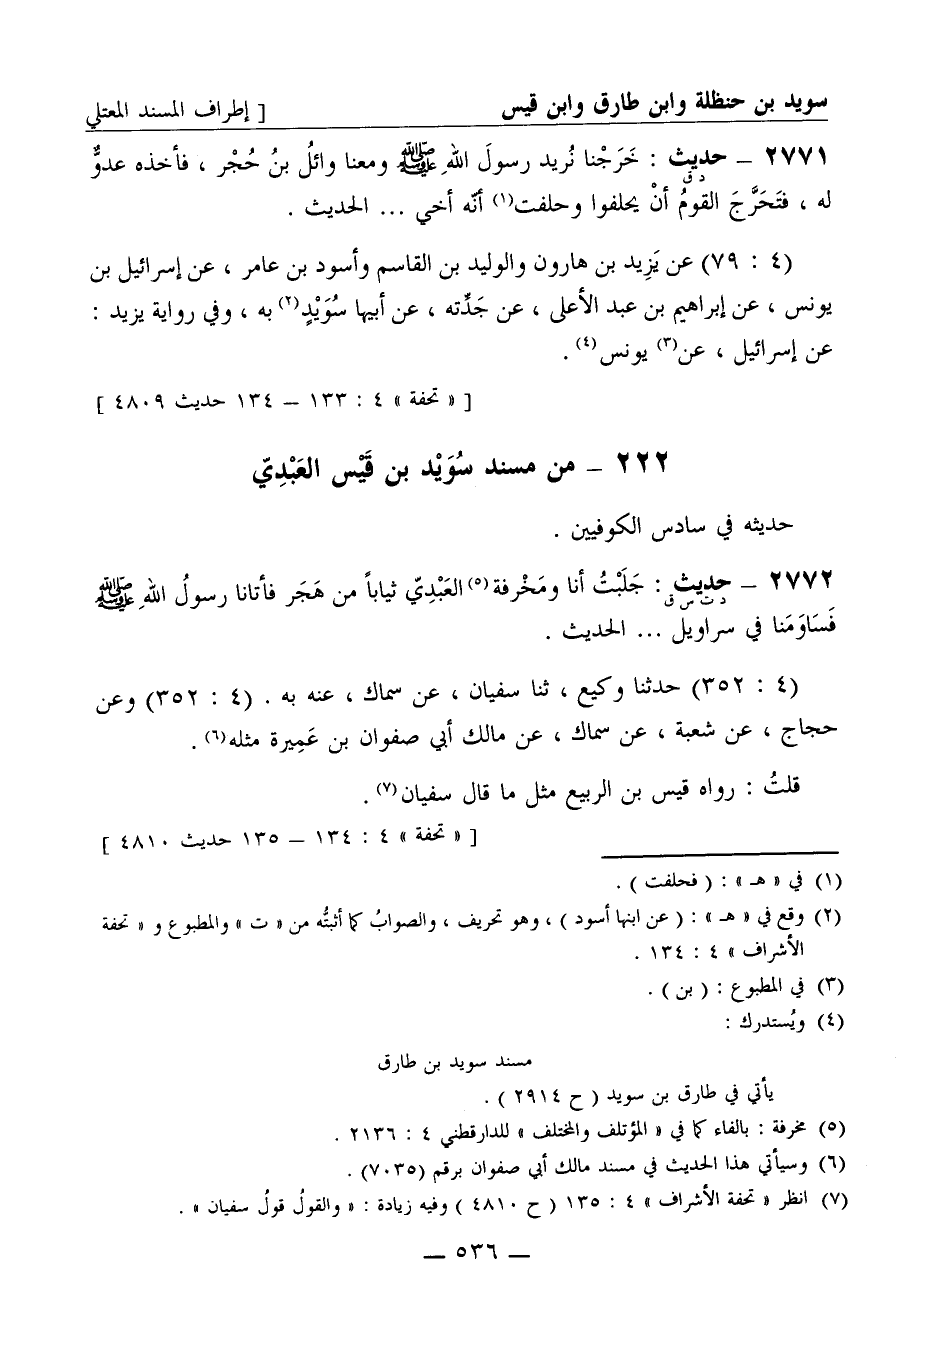 سويد بن حنظلة وابن طارق وابن قيس [ إطراف المسند المعتلي
٢٧٧١ ــ حديث : خَرَجْنا نُريد رسولَ اللهِ ﷺ ومعنا وائلُ بنُ حُجْر ، فأخذه عدوٌّ
د ق
له ، فتَحَرَّجَ القومُ أنْ يحلفوا وحلفت(١) أنّه أخي ... الحديث .
(٤ : ٧٩) عن يَزِيد بن هارون والوليد بن القاسم وأسود بن عامر ، عن إسرائيل بن
يونس ، عن إبراهيم بن عبد الأعلى ، عن جَدِّته ، عن أبيها سُوَيْدٍ(٢) به ، وفي رواية يزيد :
عن إسرائيل ، عن(٣) يونس(٤) .
[ « تحفة » ٤ : ١٣٣ ــ ١٣٤ حديث ٤٨٠٩ ]
٢٢٢ ــ من مسند سُوَيْد بن قَيْس العَبْدِيّ
حديثه في سادس الكوفيين .
٢٧٧٢ ــ حديث : جَلَبْتُ أنا ومَخْرفة(٥) العَبْدِيّ ثياباً من هَجَر فأتانا رسولُ اللهِ ﷺ
د ت س ق
فَسَاوَمَنا في سراويل ... الحديث .
(٤ : ٣٥٢) حدثنا وكيع ، ثنا سفيان ، عن سماك ، عنه به . (٤ : ٣٥٢) وعن
حجاج ، عن شعبة ، عن سماك ، عن مالك أبي صفوان بن عَمِيرة مثله(٦) .
قلتُ : رواه قيس بن الربيع مثل ما قال سفيان(٧) .
[ « تحفة » ٤ : ١٣٤ ــ ١٣٥ حديث ٤٨١٠ ]
(١) في « هـ » : ( فحلفت ) .
(٢) وقع في « هـ » : ( عن ابنها أسود ) ، وهو تحريف ، والصوابُ كما أثبتُّه من « ت » والمطبوع و « تحفة
الأشراف » ٤ : ١٣٤ .
(٣) في المطبوع : ( بن ) .
(٤) ويُستدرك :
مسند سويد بن طارق
يأتي في طارق بن سويد ( ح ٢٩١٤ ) .
(٥) مخرفة : بالفاء كما في « المؤتلف والمختلف » للدارقطني ٤ : ٢١٣٦ .
(٦) وسيأتي هذا الحديث في مسند مالك أبي صفوان برقم (٧٠٣٥) .
(٧) انظر « تحفة الأشراف » ٤ : ١٣٥ ( ح ٤٨١٠ ) وفيه زيادة : « والقولُ قولُ سفيان » .
ــ ٥٣٦ ــ